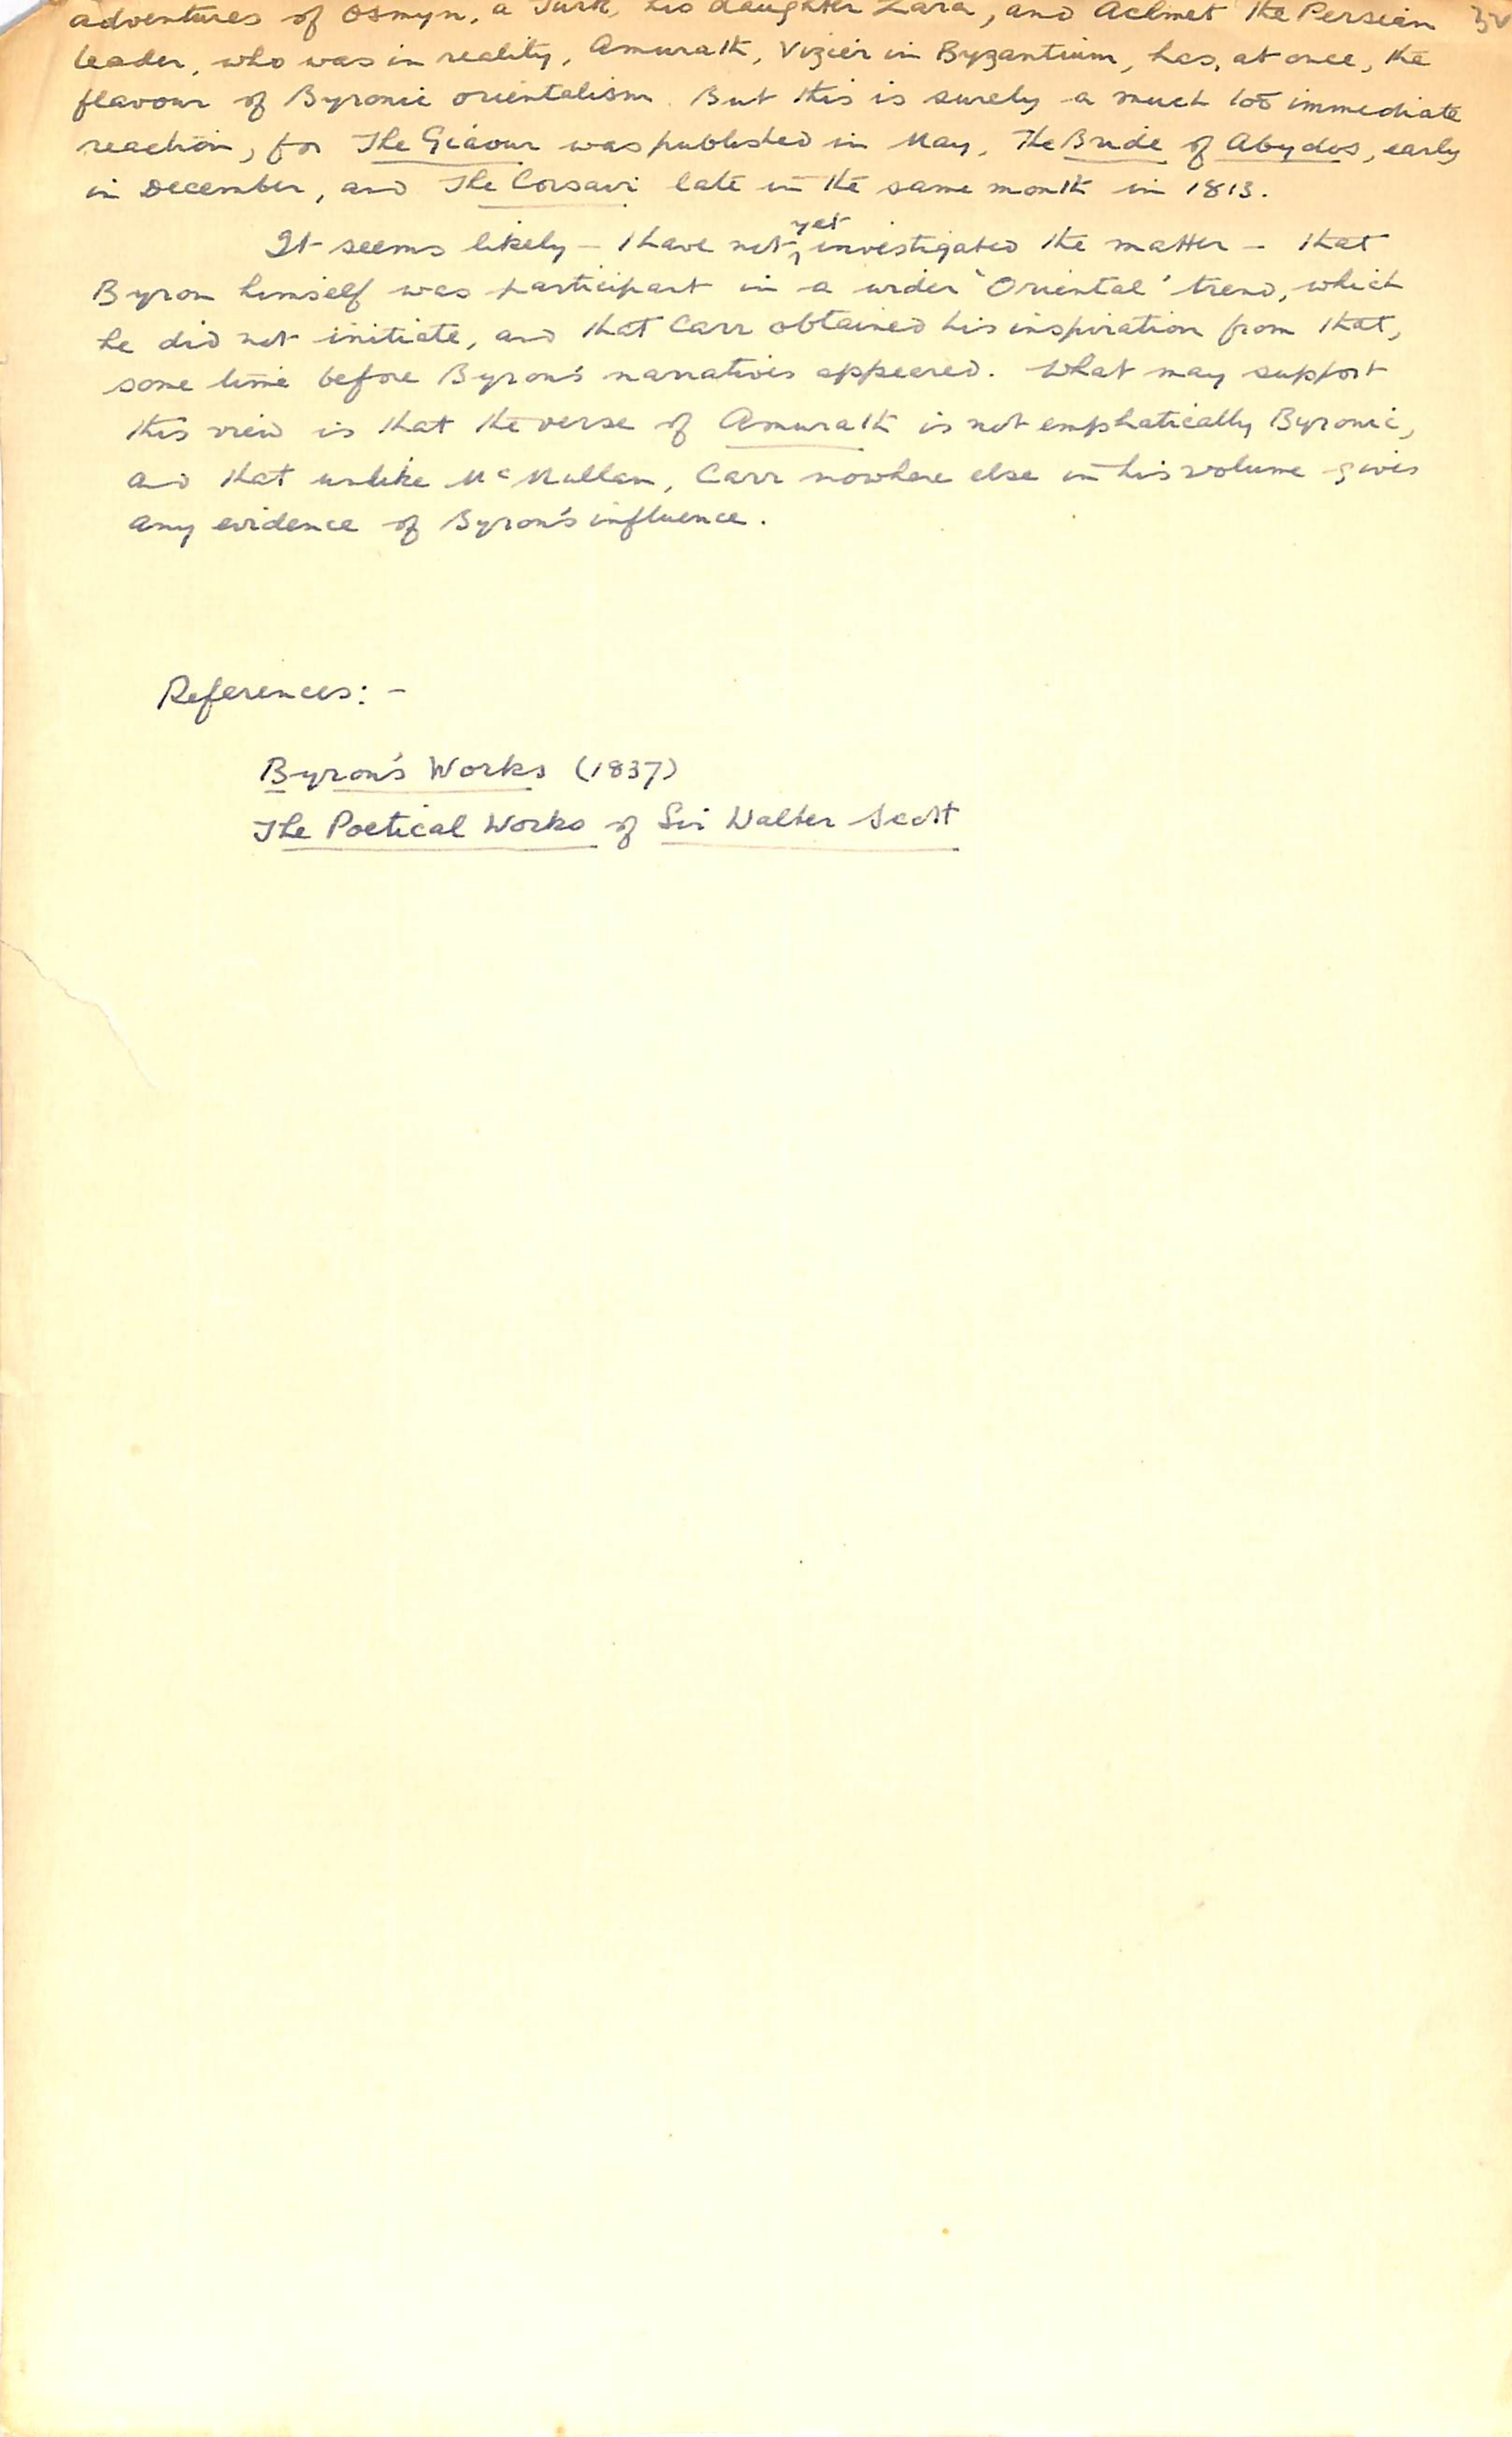 adventures of Osmyn, a Turk, his daughter Zara, and Achmet the Persian
leader, who was in reality, Amurath, Vizier in Byzantium, has, at once, the
flavour of Byronic orientalism. But this is surely a much too immediate
reaction, for The Giaour was published in May, The Bride of Abydos, early
in December, and The Corsair late in the same month in 1813.
It seems likely – I have not yet investigated the matter – that
Byron himself was participant in a wider 'Oriental' trend, which
he did not initiate, and that Carr obtained his inspiration from that,
some time before Byron's narratives appeared. What may support
this view is that the verse of Amurath is not emphatically Byronic,
and that unlike McMullan, Carr nowhere else in his volume gives
any evidence of Byron's influence.
References: -
Byron's Works (1837)
The Poetical Works of Sir Walter Scott